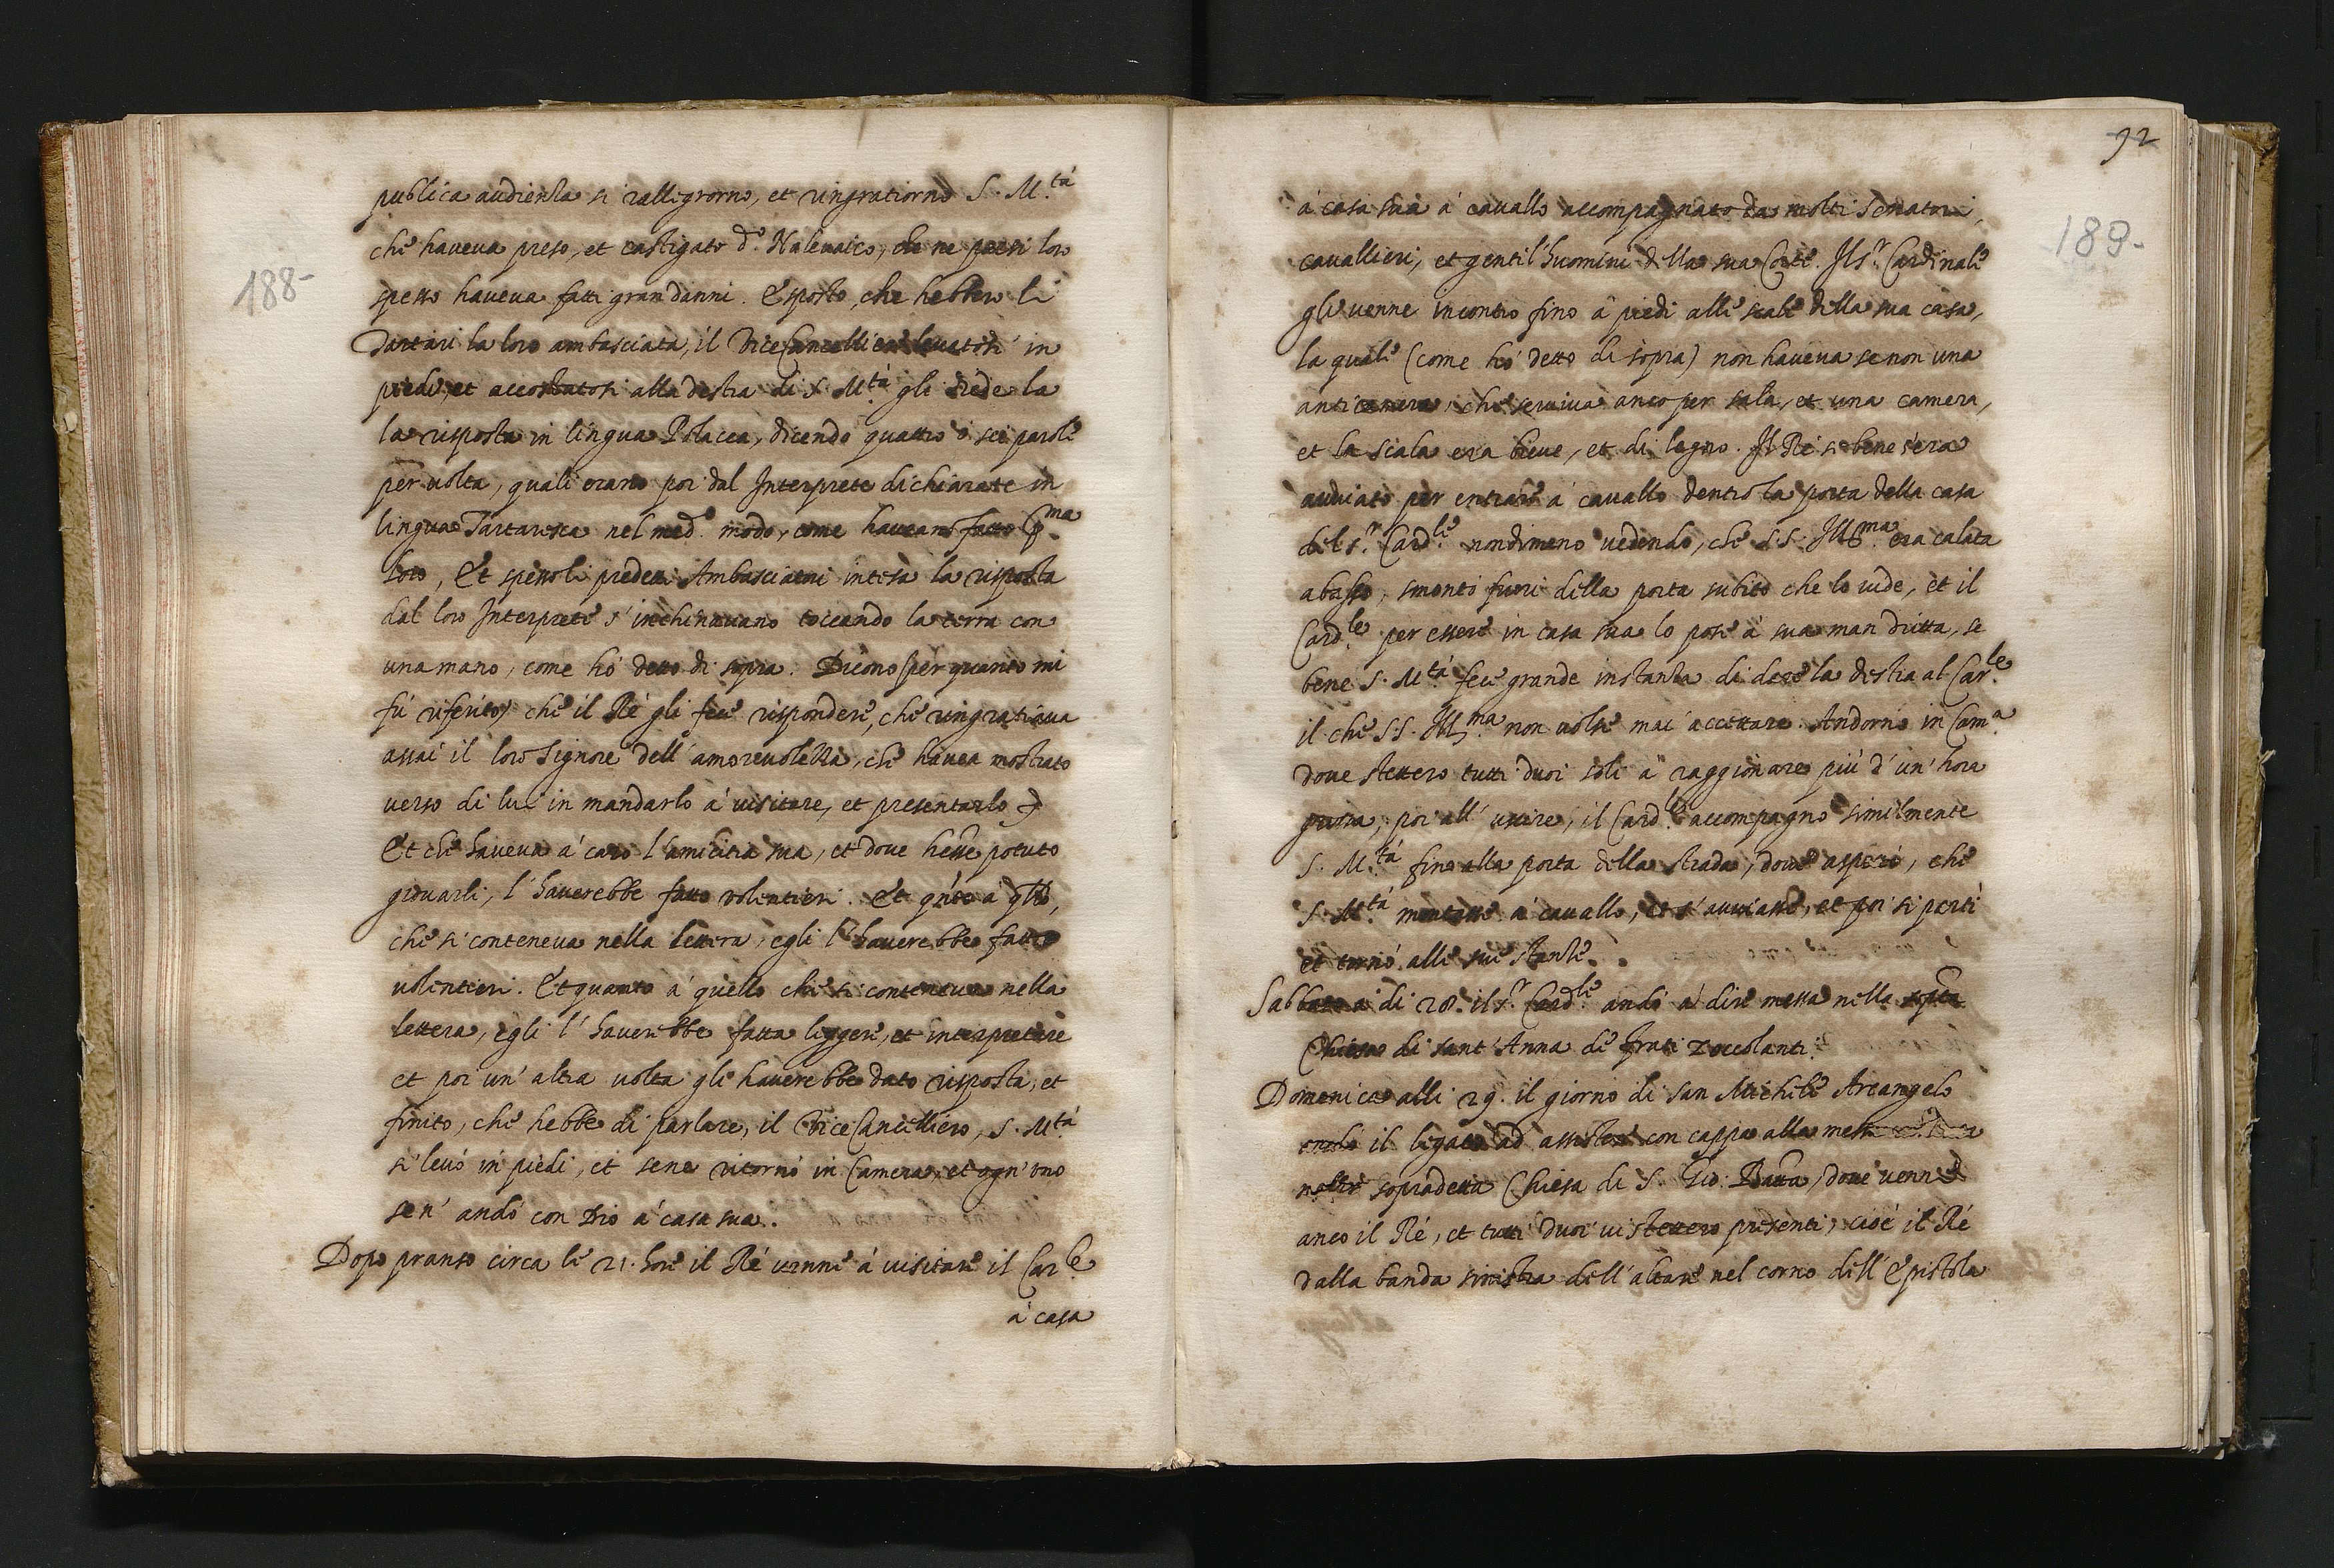 188-
publica audienza si rallegrorno, et ringratiorno S. M.tà
che haveva preso, et castigato d.o Nalevaico, che ne paesi loro
spesso haveva fatti gran danni. Esposto, che hebbero li
Tartari la loro ambasciata, il ViceCancelliere levatosi in
piedi, et accostatosi alla destra di S. M.tà gli diede la
la risposta in lingua Polacca, dicendo quattro ó sei parole
per volta, quali erano poi dal Interprete dichiarate in
lingua Tartaresca nel med.o modo, come haveano fatto p.ma
loro, Et spesso li predetti Ambasciatori intesa la risposta
dal loro Interprete s'inchinavano toccando la terra con
una mano, come hó detto di sopra. Dicono (per quanto mi
fú riferito) che il Ré gli fece rispondere, che ringratiava
assai il loro Signore dell'amorevolezza, che havea mostrato
verso di lui in mandarlo á visitare, et presentarlo,
Et che haveva á caro l'amicitia sua, et dove hesse potuto
giovarli, l'haverebbe fatto volentieri. Et q'nto á q'llo,
che si conteneva nella lettera, egli l'haverebbe fatto
volentieri. Et quanto á quello che si conteneva nella
lettera, egli l'haverebbe fatta leggere, et interpretare
et poi un'altra volta gli haverebbe dato risposta, et
finito, che hebbe di parlare, il ViceCancelliero, S. M.tà
si levó in piedi, et sene ritornó in Camera, et ogn'uno
sen'andó con Dio á casa sua.
Dopo pranso circa le 21. hore il Ré venne á visitare il Car.le
á casa
92
189-
á casa sua á cavallo accompagnato da molti senatori,
cavallieri, et gentil'huomini della sua Corte. Il S.r Cardinale
gli venne incontro fino á piedi alle scale della sua casa,
la quale (come hó detto di sopra) non haveva se non una
anticamera, che serviva anco per sala, et una camera,
et la scala era breve, et di legno. Il Ré se bene s'era
avviato per entrare á cavallo dentro la porta della casa
del S.r Card.le nondimeno vedendo, che S.S. Ill.ma era calata
abasso, smontó fuori della porta subito che lo vide, et il
Card.le per essere in casa sua lo pose á sua man dritta, se
bene S. M.tà fece grande instanza di dare la destra al Car.le
il che S.S. Ill.ma non volse mai accettare. Andorno in Cam.a
dove stettero tutti duoi soli á raggionare piú d'un'hora
grossa, poi all'uscire, il Card.le accompagnó similmente
S. M.tà fino alla porta della strada, dove aspettó, che
S. M.tà montasse á cavallo, et s'avviasse, et poi si partí
et tornó alle sue stanze.
Sabbato á di 28. il S.r Card.le andó á dire messa nella sop.ta
Chiesa di sant'Anna de frati zoccolanti.
Domenica alli 29. il giorno di san Michele Arcangelo
andó il legato ad assistere con cappa alla messa
nella sopradetta Chiesa di S. Gio: Batta, dove venne
anco il Ré, et tutti duoi vi stettero presenti, cioé il Ré
dalla banda sinistra dell'altare nel corno dell'Epistola